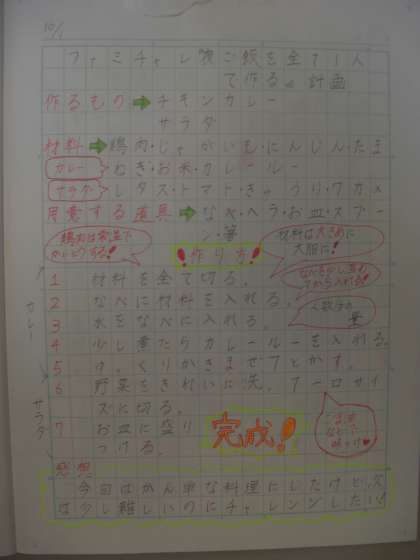 10/1
ファミチャレ 夜ご飯を全て1人
で作る。計画
作るもの➡チキンカレー
サラダ
材料➡鶏肉・じゃがいも・にんじん・たま
カレー ねぎ・お米・カレールー
サラダ レタス・トマト・きゅうり・ワカメ
用意する道具➡なべ・ヘラ・お皿・スプー
ン・箸
鶏肉は常温で
!作り方!
材料は大きめに
大胆に!
1 材料を全て切る。
2 なべに材料を入れる。
3 水をなべに入れる。
人数分の
量
カレー
4 少し煮たらカレールーを入れる。
5 ゆっくりかきまぜてとかす。
6 野菜をきれいに洗い、一口サイ
ズに切る。
サラダ
7 お皿に盛り
つける。
完成!
感想
今回はかん単な料理にしたけど、次
は少し難しいのにチャレンジしたい!